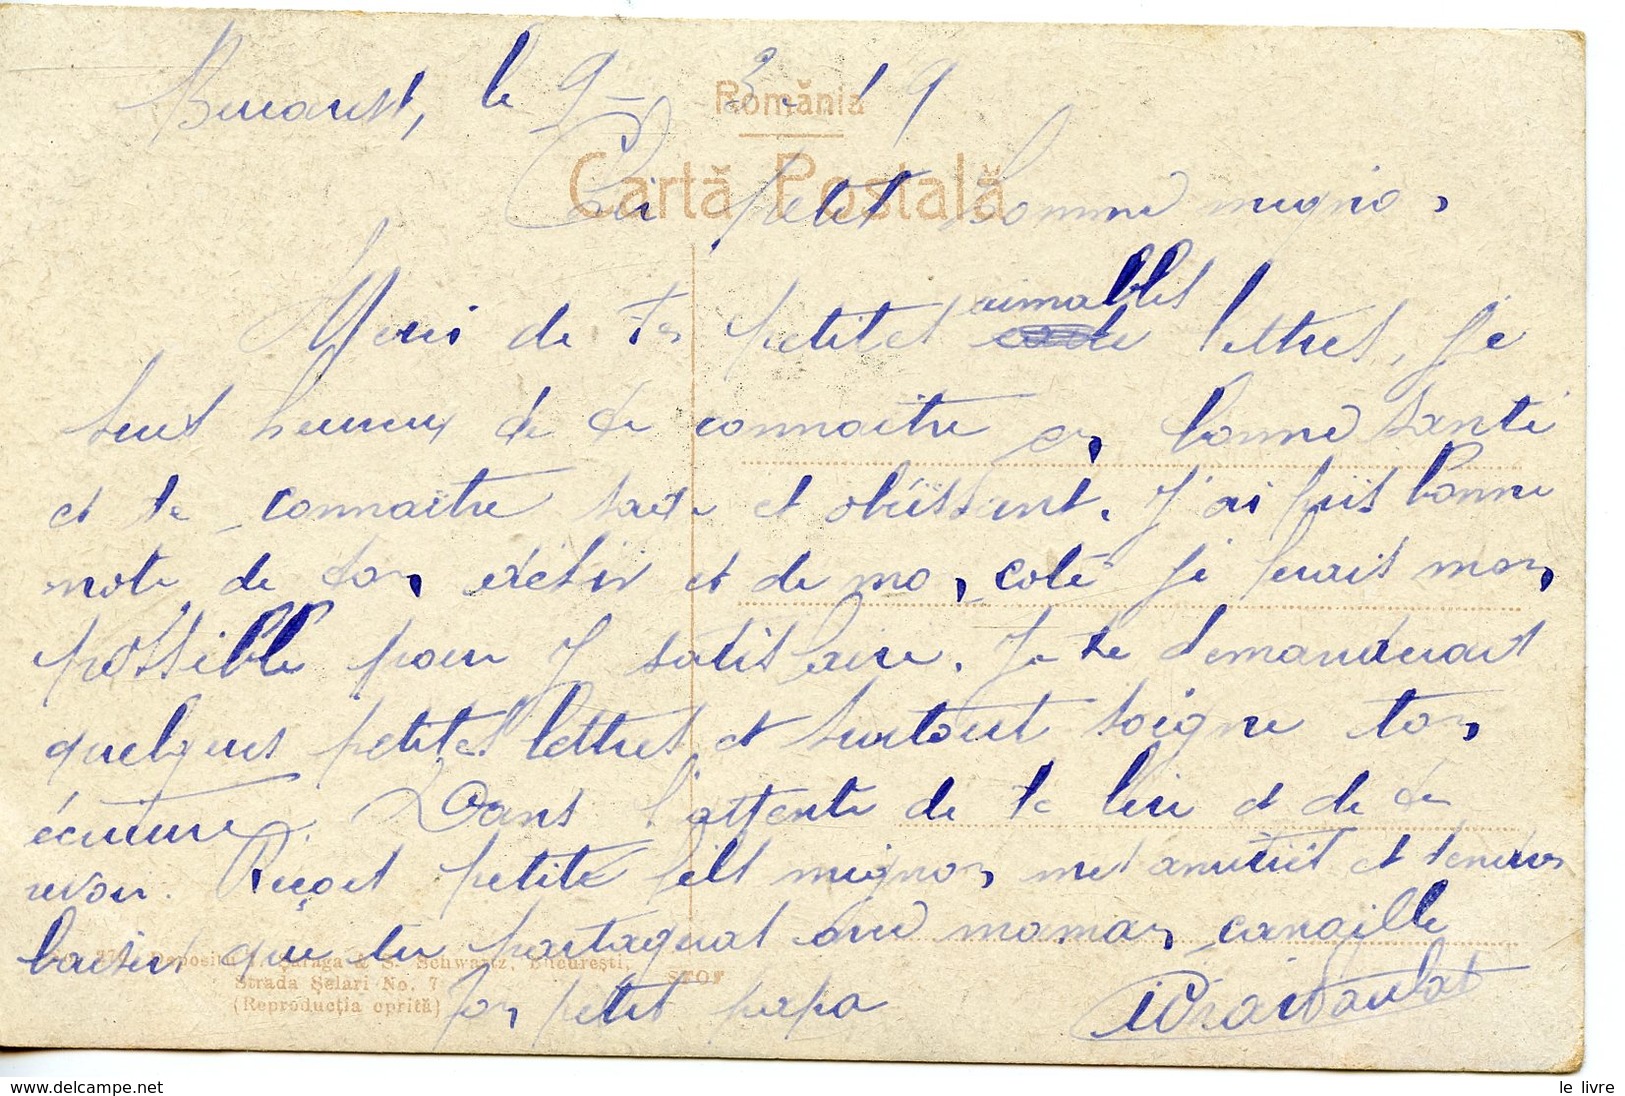 Bucarest, le 9-3-19
România
Carta Postală
petit homme migno,
Merci de tes petites aimables lettres, je
suis heureux de te connaitre en bonne santé
et te connaitre sage et obéissant. J'ai pris bonne
note de ton désir et de mon coté je ferais mon
possible pour y satisfaire. Je te demanderais
quelques petites lettres et surtout soigne ton
écriture. Dans l'attente de te lire et de te
revoir. Reçois petite fils mignon mes amitiés et tendres
baisers que tu partageras avec maman canaille
Depositul Şaraga & S. Schwartz, Bucureşti,
Strada Şelari No. 7
(Reproducţia oprită)
STOF
Ton petit papa
www.delcampe.net
le livre